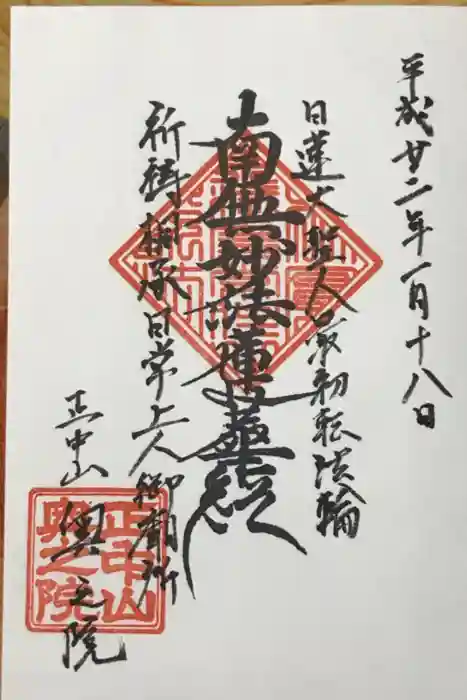 平成廿二年一月十八日
日蓮大聖人最初転法輪
南無妙法蓮華経
祈祷相承日常上人御廟所
正中山
奥之院
正中山
奥之院